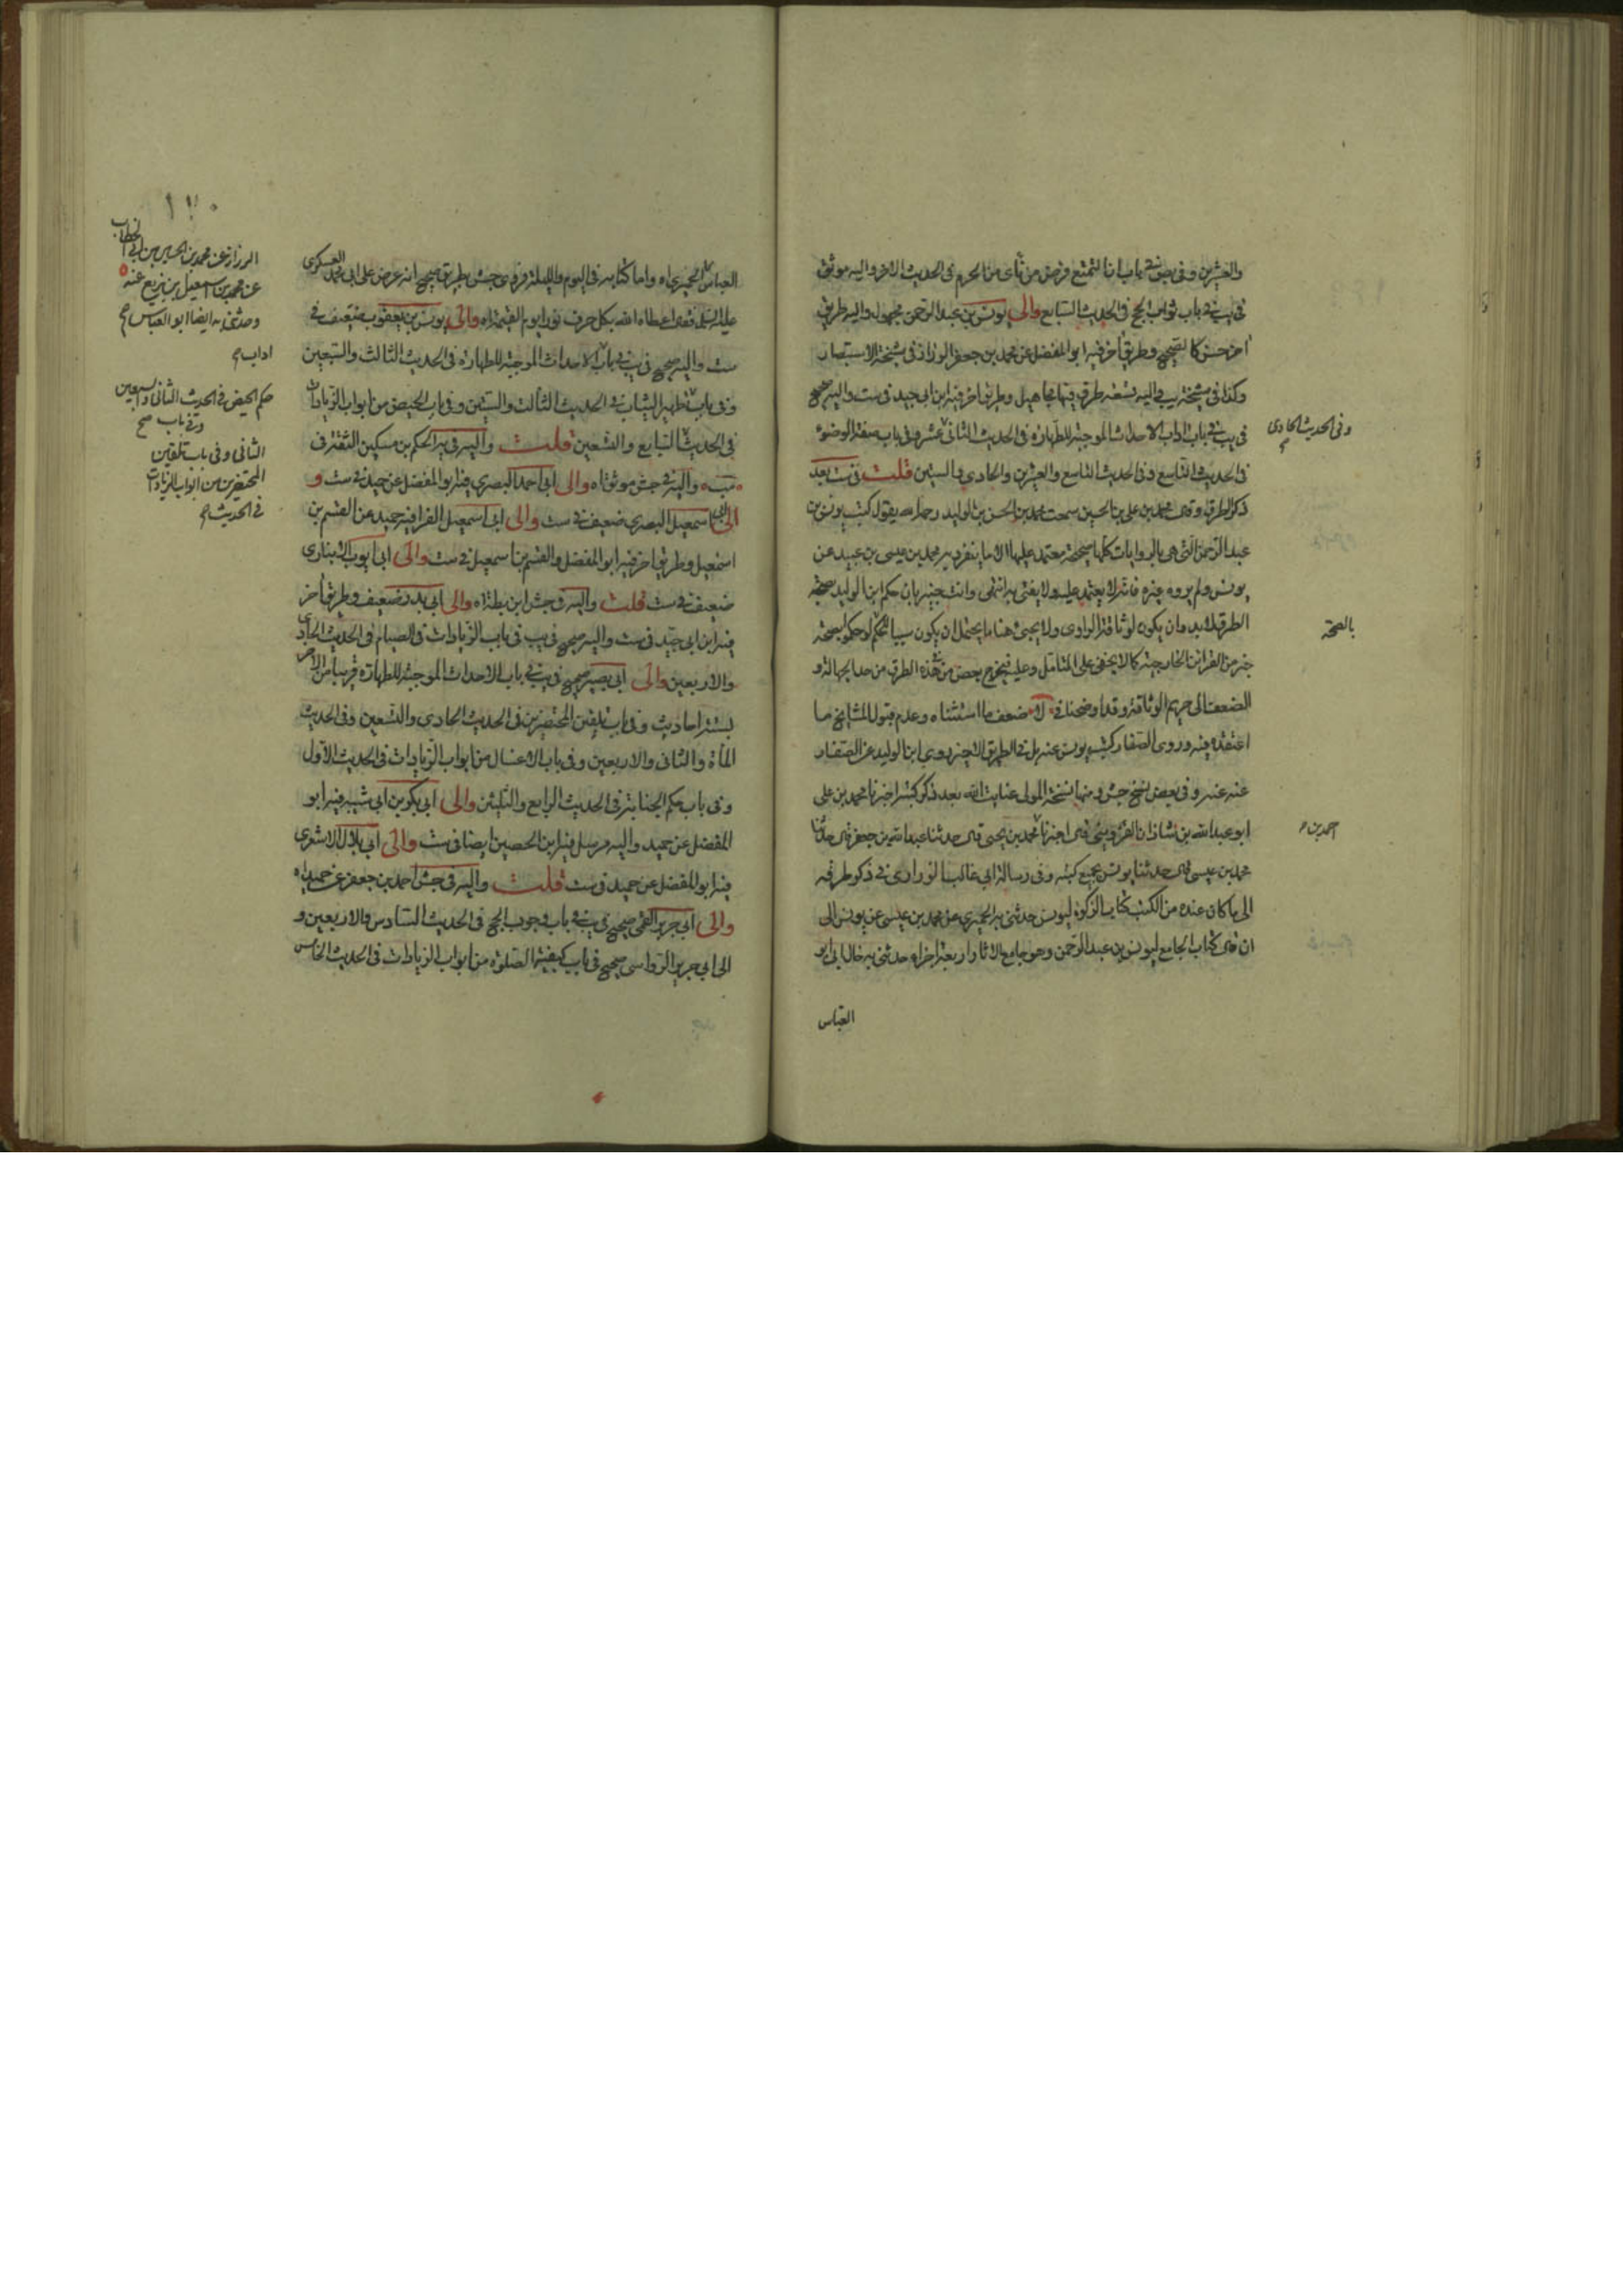 والعشرين وفي بص في باب ان التمتع فرض من نأى من الحرم في الحديث الاخر واليه موثق
في يب في باب ثواب الحج في الحديث السابع والى يونس بن عبد الرحمن مجهول واليه طريق
اخر حسن كالصحيح وطريق اخر فيه ابو المفضل عن محمد بن جعفر الرزاز في مشيخة الاستبصار
وكذا في مشيخة يب في اليه تسعة طرق فيها مجاهيل وطريق اخر فيه ابن ابي جيد في ست واليه صحيح
في يب في باب اداب الاحداث الموجبة للطهارة في الحديث الثاني عشر وفي باب صفة الوضوء
في الحديث التاسع وفي الحديث التاسع والعشرين والحادي والستين قلت في ست بعد
ذكر الطرق وقال محمد بن علي بن الحسين سمعت محمد بن الحسن بن الوليد رحمه الله يقول كتب يونس بن
عبد الرحمن التي هي بالروايات كلها صحيحة معتمد عليها الا ما ينفرد به محمد بن عيسى بن عبيد عن
يونس ولم يروه غيره فانه لا يعتمد عليه ولا يفتى به انتهى وانت خبير بان حكم ابن الوليد بصحة
الطرق لابد وان يكون لوثاقة الراوي ولا يجئ هنا ما يحتمل ان يكون سببا لحكم لو حكم بصحة
خبر من القرائن الخارجية كما لا يخفى على المتامل وعليه فيخرج بعض من هذه الطرق من حد الجهالة و
الضعف الى حريم الوثاقة وقد اوضحنا في ضعف ما استثناه وعدم قبول المشايخ ما
اعتقده فيه وروى الصفار كتب يونس عنه بل في الطريق الاخير روى ابن الوليد عن الصفار
عنه عنه وفي بعض نسخ جش ومنها نسخة المولى عناية الله بعد ذكر كتبه اخبرنا محمد بن علي
ابو عبد الله بن شاذان القزويني قال اخبرنا محمد بن يحيى قال حدثنا عبد الله بن جعفر قال حدثنا
محمد بن عيسى قال حدثنا يونس بجميع كتبه وفي رسالة ابي غالب الزراري في ذكر طرقه
الى ما كان عنده من الكتب كتاب الزكوة ليونس حدثني به الحميري عن محمد بن عيسى عن يونس الى
ان قال كتاب الجامع ليونس بن عبد الرحمن وهو جامع الاثار اربعة اجزاء حدثني به خال ابي ابو
العباس
وفي الحديث الحادي
بالصحة
احمد بن
١٢٠
العباس الحميري اه واما كتابه في اليوم والليلة فروى جش بطريق صحيح انه عرض على ابي محمد العسكري
عليه السلم فقال اعطاه الله بكل حرف نورا يوم القيمة اه والى يونس بن يعقوب ضعيف في
ست واليه صحيح في يب في باب الاحداث الموجبة للطهارة في الحديث الثالث والسبعين
وفي باب تطهير الثياب في الحديث الثالث والستين وفي باب الحيض من ابواب الزيادات
في الحديث السابع والتسعين قلت واليه في يه الحكم بن مسكين الثقة في
واليه في جش موثق اه والى ابي احمد البصري فيه ابو المفضل عن حميد في ست و
الى ابي اسمعيل البصري ضعيف في ست والى ابي اسمعيل الفرا فيه حميد عن القسم بن
اسمعيل وطريق اخر فيه ابو المفضل والقسم بن اسمعيل في ست والى ابي ايوب الانباري
ضعيف في ست قلت واليه في جش ابن بطة اه والى ابي بدر ضعيف وطريق اخر
فيه ابن ابي جيد في ست واليه صحيح في يب في باب الزيادات في الصيام في الحديث الحادي
والاربعين والى ابي بصير صحيح في يب في باب الاحداث الموجبة للطهارة قريبا من الاخر
بستة احاديث وفي باب تلقين المحتضرين في الحديث الحادي والتسعين وفي الحديث
المأة والثاني والاربعين وفي باب الاغسال من ابواب الزيادات في الحديث الاول
وفي باب حكم الجنابة في الحديث الرابع والثلثين والى ابي بكر بن ابي شيبة فيه ابو
المفضل عن حميد واليه مرسل فيه ابن الحصين ايضا في ست والى ابي بلال الاشعري
فيه ابو المفضل عن حميد في ست قلت واليه في جش احمد بن جعفر عن حميد اه
والى ابي جرير القمي صحيح في يب في باب وجوب الحج في الحديث السادس والاربعين و
الى ابي جرير الرواسي صحيح في باب كيفية الصلوة من ابواب الزيادات في الحديث الخامس
الرزاز عن محمد بن الحسين بن ابي الخطاب
عن محمد بن اسمعيل بن بزيع عنه
وحدثني به ايضا ابو العباس
اداب
حكم الحيض في الحديث الثاني والسبعين
وفي باب صح
الثاني وفي باب تلقين
المحتضرين من ابواب الزيادات
في الحديث